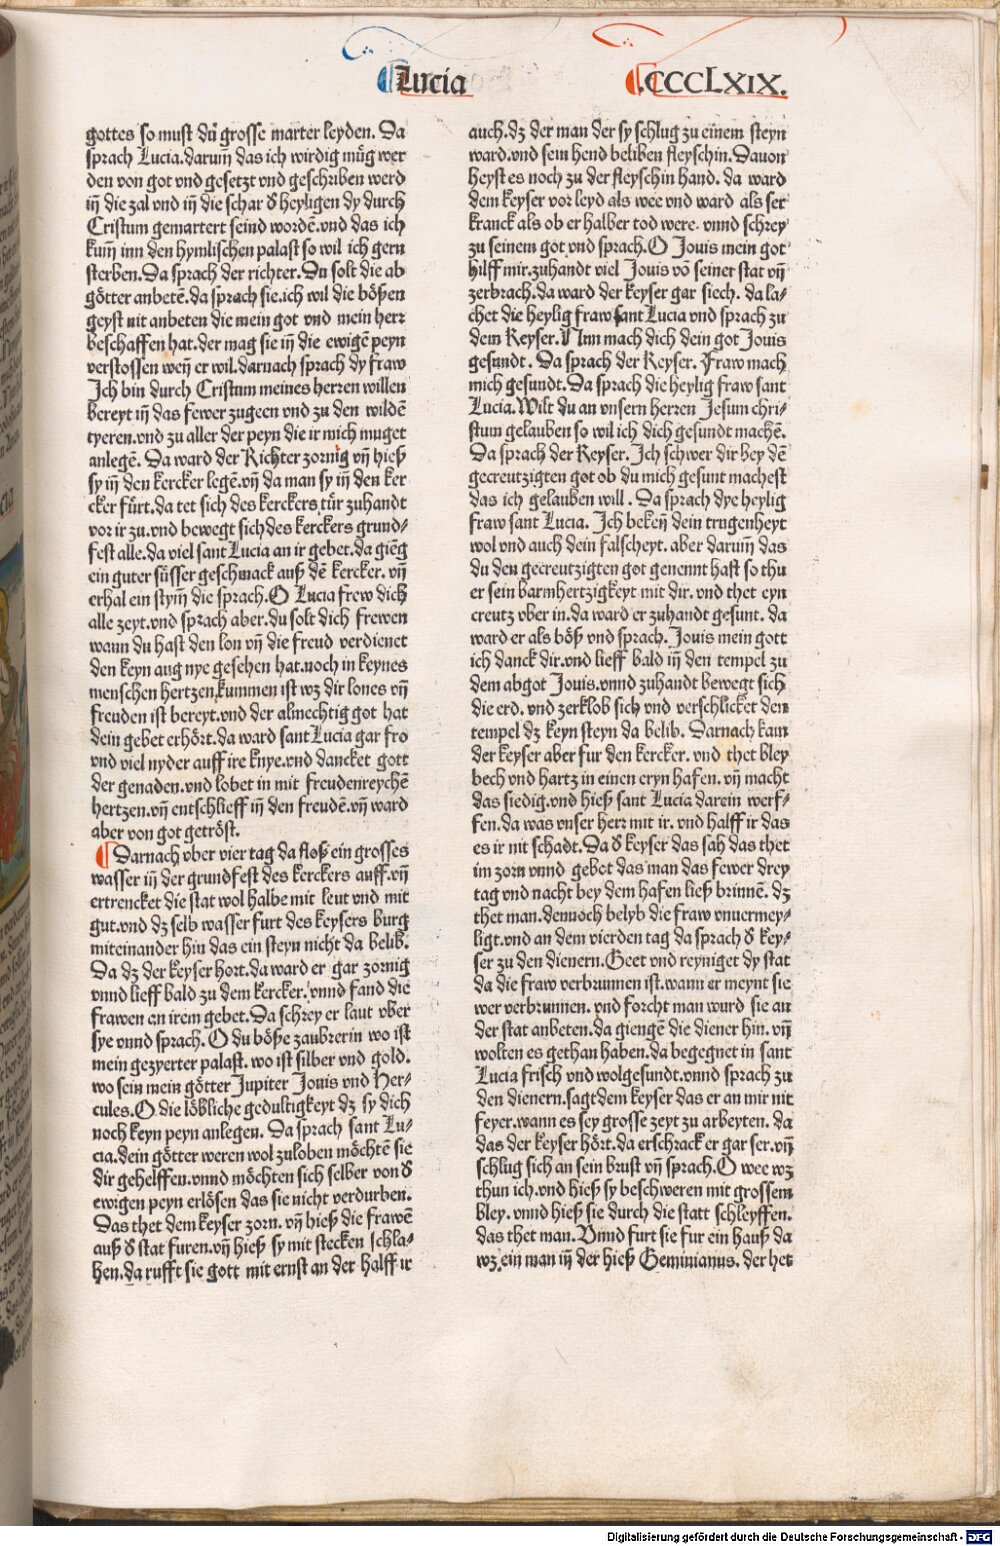 Lucia
.CCCLXIX.
gottes so must dů grosse marter leyden. Da
sprach Lucia.darum̄ das ich wirdig můg wer
den von got vnd gesetzt vnd geschriben werd
in̄ die zal vnd in̄ die schar d̕ heyligen dy durch
Cristum gemartert seind wordē.vnd das ich
kum̄ inn den hymlischen palast so wil ich gern
sterben.Da sprach der richter.Du solt die ab
götter anbetē.da sprach sie.ich wil die bößen
geyst nit anbeten die mein got vnd mein herr
beschaffen hat.der mag sie in̄ die ewigē peyn
verstossen wen̄ er wil.darnach sprach dy fraw
Ich bin durch Cristum meines herren willen
bereyt in̄ das fewer zugeen vnd zu den wildē
tyeren.vnd zu aller der peyn die ir mich muget
anlegē. Da ward der Richter zornig vn̄ hieß
sy in̄ den kercker legē.vn̄ da man sy in̄ den ker
cker fůrt.da tet sich des kerckers tůr zuhandt
vor ir zu.vnd bewegt sich des kerckers grund⸗
fest alle.da viel sant Lucia an ir gebet.da giēg
ein guter sůsser geschmack auß dē kercker. vn̄
erhal ein stym̄ die sprach.O Lucia frew dich
alle zeyt.vnd sprach aber.du solt dich frewen
wann du hast den lon vn̄ die freud verdienet
den keyn aug nye gesehen hat.noch in keynes
menschen hertzen kummen ist wz dir lones vn̄
freuden ist bereyt.vnd der almechtig got hat
dein gebet erhört.da ward sant Lucia gar fro
vnd viel nyder auff ire knye.vnd dancket gott
der genaden.vnd lobet in mit freudenreychē
hertzen.vn̄ entschlieff in̄ den freudē.vn̄ ward
aber von got getröst.
Darnach vber vier tag da floß ein grosses
wasser in̄ der grundfest des kerckers auff.vn̄
ertrencket die stat wol halbe mit leut vnd mit
gut.vnd dz selb wasser furt des keysers burg
miteinander hin das ein steyn nicht da belib.
Da dz der keyser hort.da ward er gar zornig
vnnd lieff bald zu dem kercker. vnnd fand die
frawen an irem gebet.Da schrey er laut vber
sye vnnd sprach. O du böße zaubrerin wo ist
mein gezyerter palast. wo ist silber vnd gold.
wo sein mein götter Jupiter Jouis vnd Her⸗
cules.O die löbliche gedultigkeyt dz sy dich
noch keyn peyn anlegen. Da sprach sant Lu⸗
cia.dein götter weren wol zuloben möchtē sie
dir gehelffen.vnnd möchten sich selber von d̕
ewigen peyn erlösen das sie nicht verdurben.
Das thet dem keyser zorn. vn̄ hieß die frawē
auß d̕ stat furen.vn̄ hieß sy mit stecken schla⸗
hen.da rufft sie gott mit ernst an der halff ir
auch.dz der man der sy schlug zu einem steyn
ward.vnd sein hend beliben fleyschin.Dauon
heyst es noch zu der fleyschin hand. da ward
dem keyser vor leyd als wee vnd ward als ser
kranck als ob er halber tod were. vnnd schrey
zu seinem got vnd sprach.O Jouis mein got
hilff mir.zuhandt viel Jouis vō seiner stat vn̄
zerbrach.da ward der keyser gar siech. da la⸗
chet die heylig fraw sant Lucia vnd sprach zu
dem Keyser.Nnn mach dich dein got Jouis
gesundt. Da sprach der Keyser. Fraw mach
mich gesundt.Da sprach die heylig fraw sant
Lucia.Wilt du an vnsern herren Jesum chri⸗
stum gelauben so wil ich dich gesundt machē.
Da sprach der Keyser. Ich schwer dir bey dē
gecreutzigten got ob du mich gesunt machest
das ich gelauben will. Da sprach dye heylig
fraw sant Lucia. Ich beken̄ dein trugenheyt
wol vnd auch dein falscheyt. aber darum̄ das
du den gecreutzigten got genennt hast so thu
er sein barmhertzigkeyt mit dir. vnd thet eyn
creutz vber in.da ward er zuhandt gesunt. da
ward er als böß vnd sprach. Jouis mein gott
ich danck dir.vnd lieff bald in̄ den tempel zu
dem abgot Jouis.vnnd zuhandt bewegt sich
die erd. vnd zerklob sich vnd verschlicket den
tempel dz keyn steyn da belib. Darnach kam
der keyser aber fur den kercker. vnd thet bley
bech vnd hartz in einen eryn hafen. vn̄ macht
das siedig.vnd hieß sant Lucia darein werf⸗
fen.da was vnser herr mit ir. vnd halff ir das
es ir nit schadt. Da d̕ keyser das sah das thet
im zorn vnnd gebet das man das fewer drey
tag vnd nacht bey dem hafen ließ brinnē. dz
thet man.dennoch belyb die fraw vnuermey⸗
ligt.vnd an dem vierden tag da sprach d̕ key⸗
ser zu den dienern.Geet vnd reyniget dy stat
da die fraw verbrunnen ist.wann er meynt sie
wer verbrunnen. vnd forcht man wurd sie an
der stat anbeten.da giengē die diener hin. vn̄
wolten es gethan haben.da begegnet in sant
Lucia frisch vnd wolgesundt.vnnd sprach zu
den dienern.sagt dem keyser das er an mir nit
feyer.wann es sey grosse zeyt zu arbeyten. da
das der keyser hört.da erschrack er gar ser.vn̄
schlug sich an sein brust vn̄ sprach.O wee wz
thun ich.vnd hieß sy beschweren mit grossem
bley. vnnd hieß sie durch die statt schleyffen.
das thet man. Vnnd furt sie fur ein hauß da
wz ein man in̄ der hieß Geminianus. der het
Digitalisierung gefördert durch die Deutsche Forschungsgemeinschaft - DFG